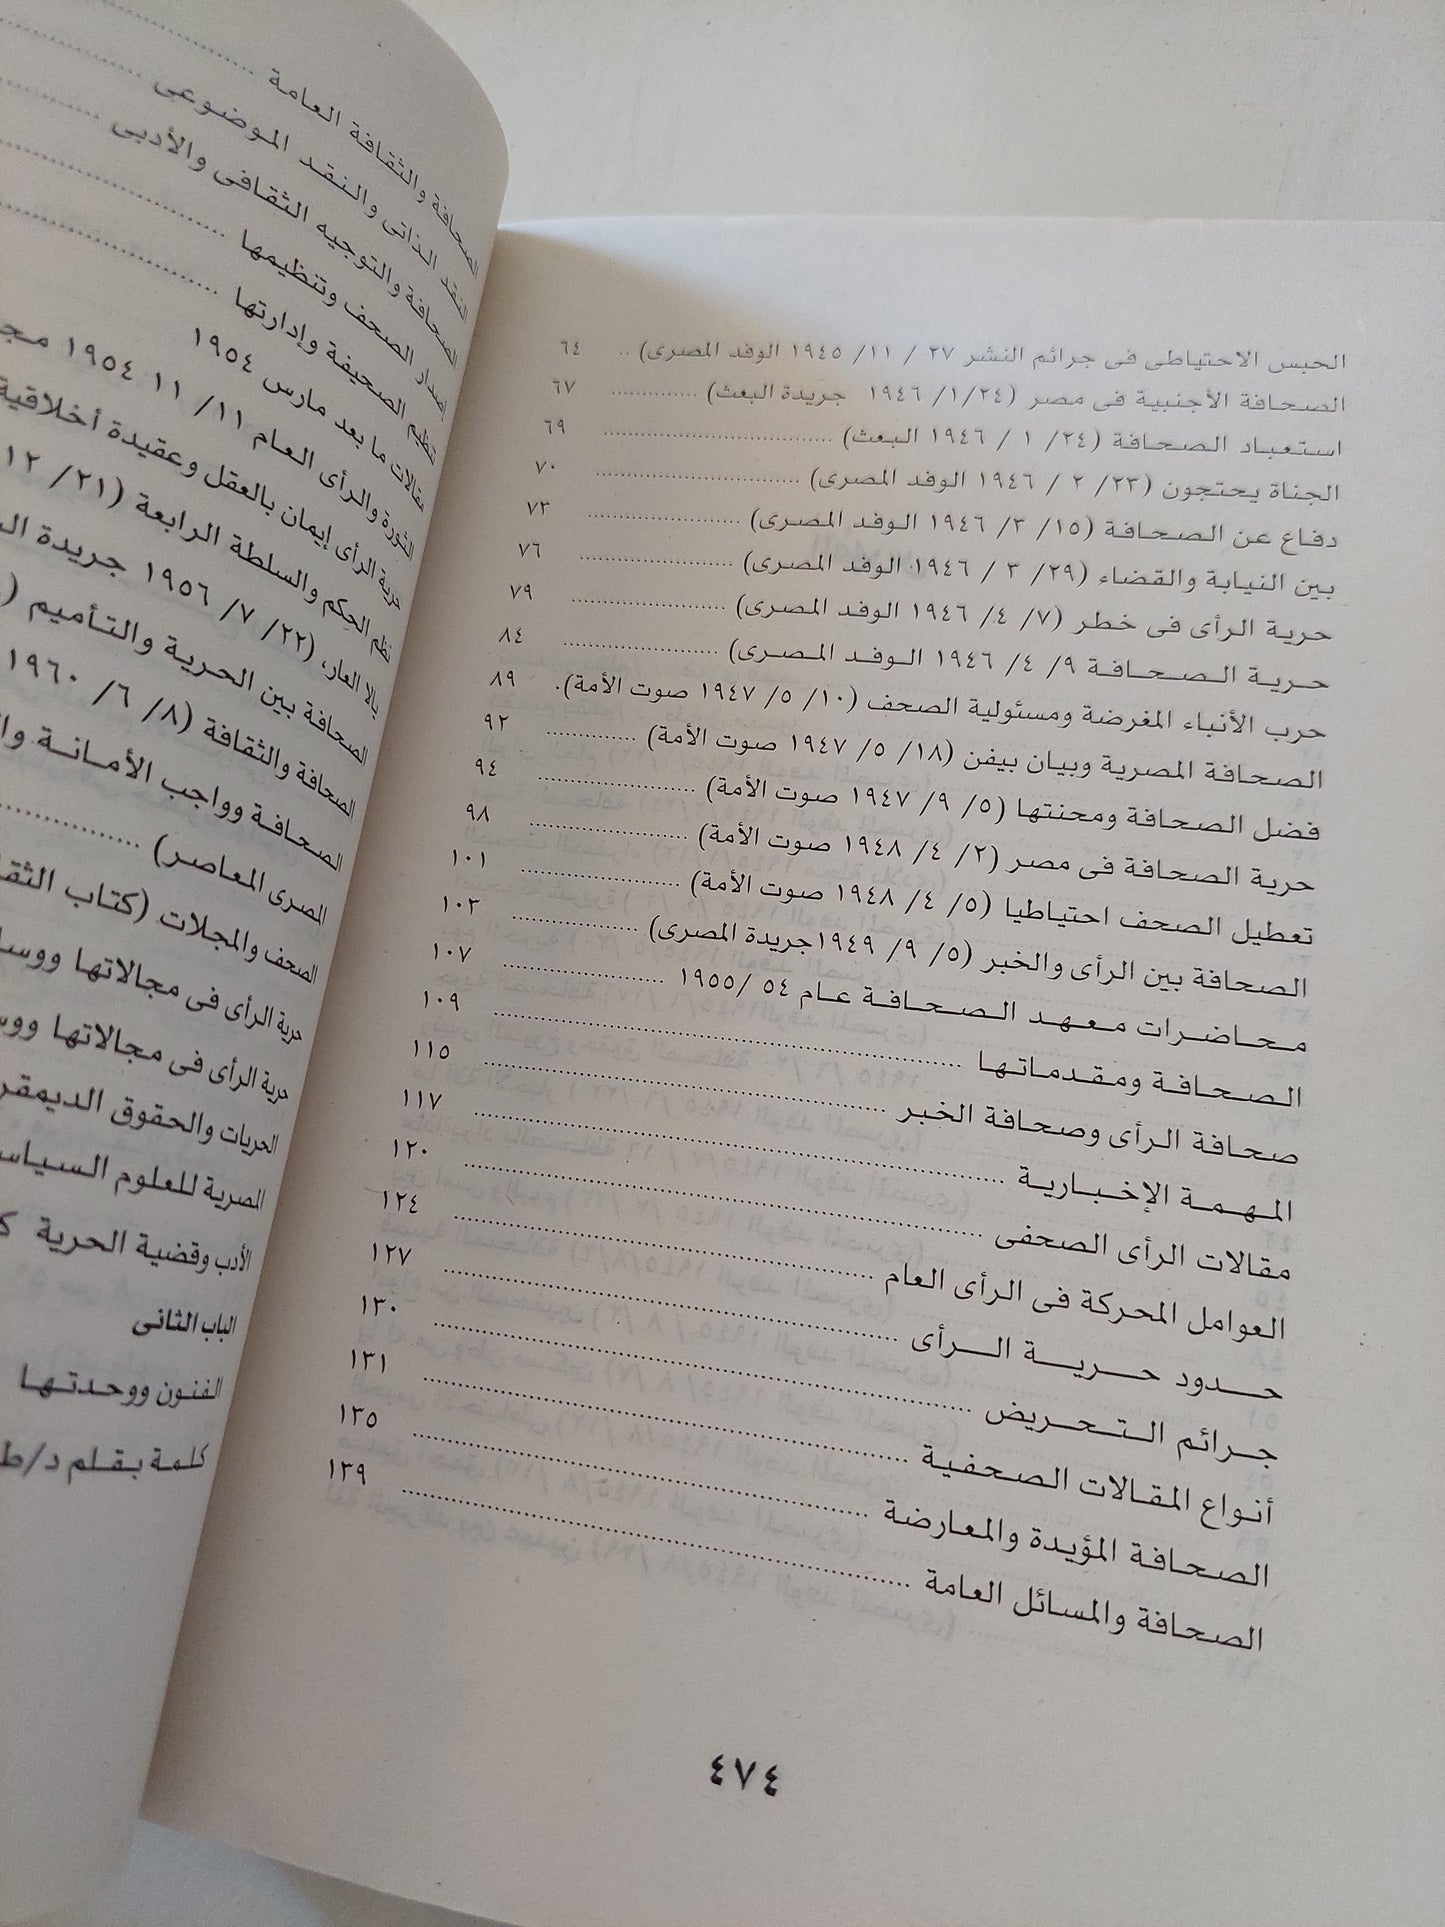 الحبس الاحتياطى فى جرائم النشر ٢٧ / ١١/ ١٩٤٥ الوفد المصرى) .. ٦٤
الصحافة الأجنبية فى مصر (١/٢٤/ ١٩٤٦ جريدة البعث) .............. ٦٧
استعباد الصحافة (٢٤/ ١ / ١٩٤٦ البعث) .............. ٦٩
الجناة يحتجون (٢٣/ ٢ / ١٩٤٦ الوفد المصرى) .............. ٧٠
دفاع عن الصحافة (١٥/ ٣/ ١٩٤٦ الوفد المصرى) .............. ٧٣
بين النيابة والقضاء (٢٩/ ٣ / ١٩٤٦ الوفد المصرى) .............. ٧٦
حرية الرأى فى خطر (٧/ ٤/ ١٩٤٦ الوفد المصرى) .............. ٧٩
حرية الصحافة ٩/ ٤/ ١٩٤٦ الوفد المصرى) .............. ٨٤
حرب الأنباء المغرضة ومسئولية الصحف (١٠/ ٥/ ١٩٤٧ صوت الأمة). ٨٩
الصحافة المصرية وبيان بيفن (١٨/ ٥/ ١٩٤٧ صوت الأمة) .............. ٩٢
فضل الصحافة ومحنتها (٥/ ٩/ ١٩٤٧ صوت الأمة) .............. ٩٤
حرية الصحافة فى مصر (٢/ ٤/ ١٩٤٨ صوت الأمة) .............. ٩٨
تعطيل الصحف احتياطيا (٥/ ٤/ ١٩٤٨ صوت الأمة) .............. ١٠١
الصحافة بين الرأى والخبر (٥/ ٩/ ١٩٤٩جريدة المصرى) .............. ١٠٣
محاضرات معهد الصحافة عام ٥٤ /١٩٥٥ .............. ١٠٧
الصحافة ومقدماتها .............. ١٠٩
صحافة الرأى وصحافة الخبر .............. ١١٥
المهمة الإخبارية .............. ١١٧
مقالات الرأى الصحفى .............. ١٢٠
العوامل المحركة فى الرأى العام .............. ١٢٤
حدود حرية الرأى .............. ١٢٧
جرائم التحريض .............. ١٣٠
أنواع المقالات الصحفية .............. ١٣١
الصحافة المؤيدة والمعارضة .............. ١٣٥
الصحافة والمسائل العامة .............. ١٣٩
٤٧٤
الصحافة والثقافة العامة ..............
النقد الذاتى والنقد الموضوعى ..............
الصحافة والتوجيه الثقافى والأدبى ..............
إصدار الصحف وتنظيمها ..............
تنظيم الصحيفة وإدارتها ..............
مقالات ما بعد مارس ١٩٥٤
الثورة والرأى العام ١١/ ١١ ١٩٥٤
حرية الرأى إيمان بالعقل وعقيدة أخلاقية
نظم الحكم والسلطة الرابعة (٢١/ ١٢
يالا العار، (٢٢/ ٧/ ١٩٥٦ جريدة
الصحافة بين الحرية والتأميم (
الصحافة والثقافة (٨/ ٦/ ١٩٦٠
الصحافة وواجب الأمانة
المصرى المعاصر) ..............
الصحف والمجلات (كتاب
حرية الرأى فى مجالاتها
حرية الرأى فى مجالاتها
الحريات والحقوق
المصرية للعلوم
الأدب وقضية الحرية
الباب الثانى
الفنون ووحدتها
كلمة بقلم د/